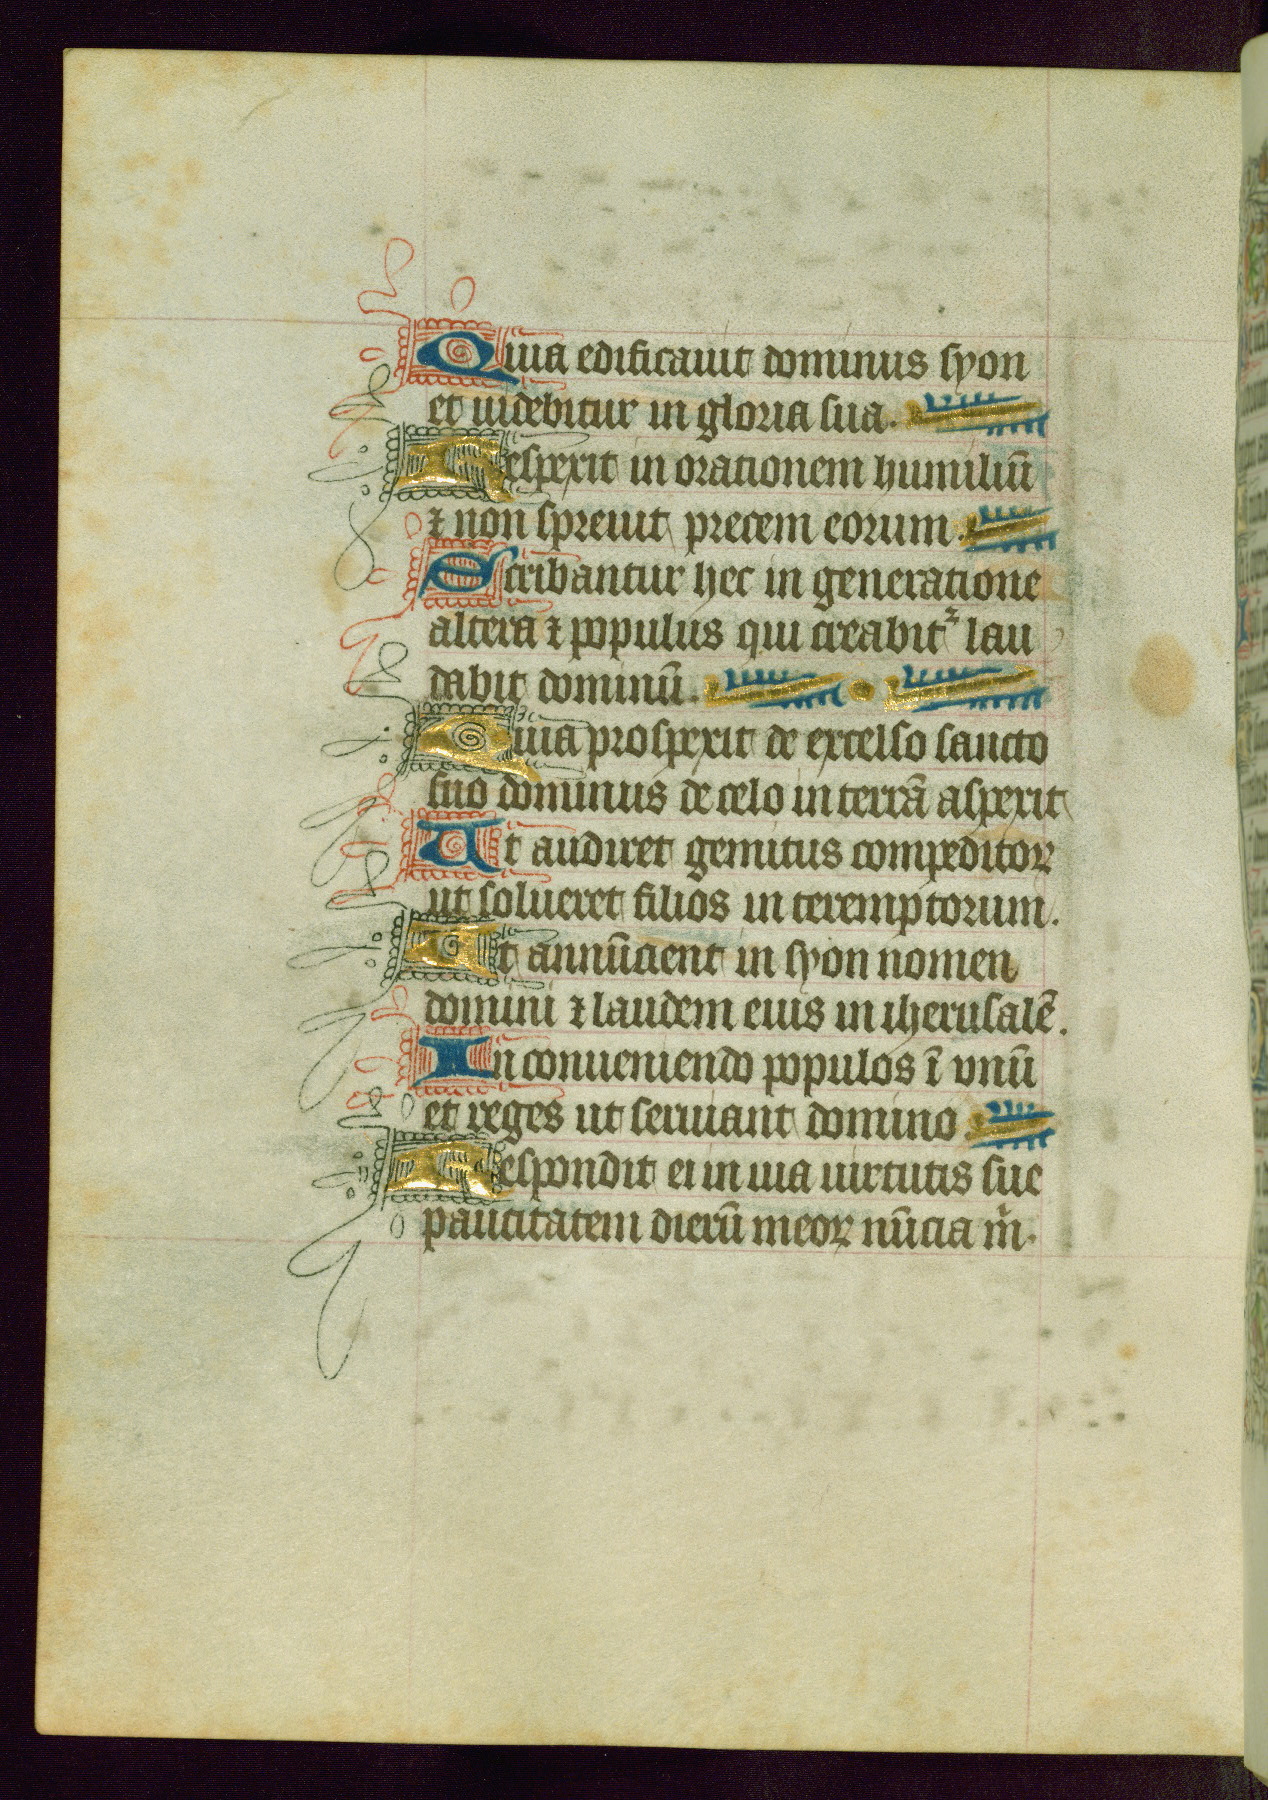 Quia edificauit dominus syon
et uidebitur in gloria sua.
Respexit in orationem humiliū
⁊ non spreuit precem eorum.
Scribantur hec in generatione
altera ⁊ populus qui creabitᷣ lau
dabit dominū.
Quia prospexit de excelso sancto
suo dominus de celo in terrā aspexit
Ut audiret gemitus compeditoꝝ
ut solueret filios in teremptorum.
Et annūcient in syon nomen
domini ⁊ laudem eius in iherusalē.
In conueniendo populos ī vnū
et reges ut seruiant domino.
Respondit ei in uia uirtutis sue
paucitatem dierū meoꝝ nūcia m̄.